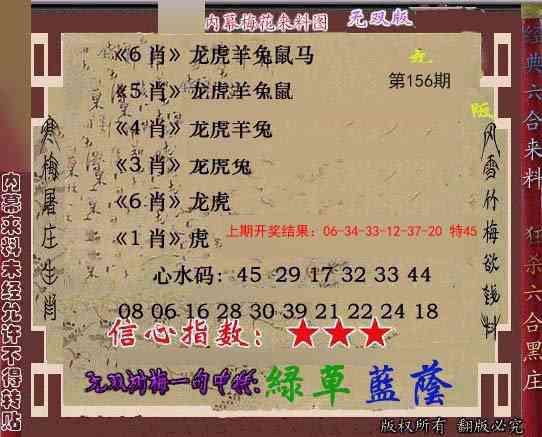 内幕梅花来料图 无双版
《6肖》龙虎羊兔鼠马
无
第156期
《5肖》龙虎羊兔鼠
版
《4肖》龙虎羊兔
《3肖》龙虎兔
《6肖》龙虎
上期开奖结果：06-34-33-12-37-20 特45
《1肖》虎
心水码：45 29 17 32 33 44
08 06 16 28 30 39 21 22 24 18
信心指数：★★★
无双 梅一句中特:綠草藍蔭
版权所有 翻版必究
内幕来料未经允许不得转贴
寒梅屠庄生肖
风雪竹梅欲钱料
经典六合来料 狂杀六合黑庄